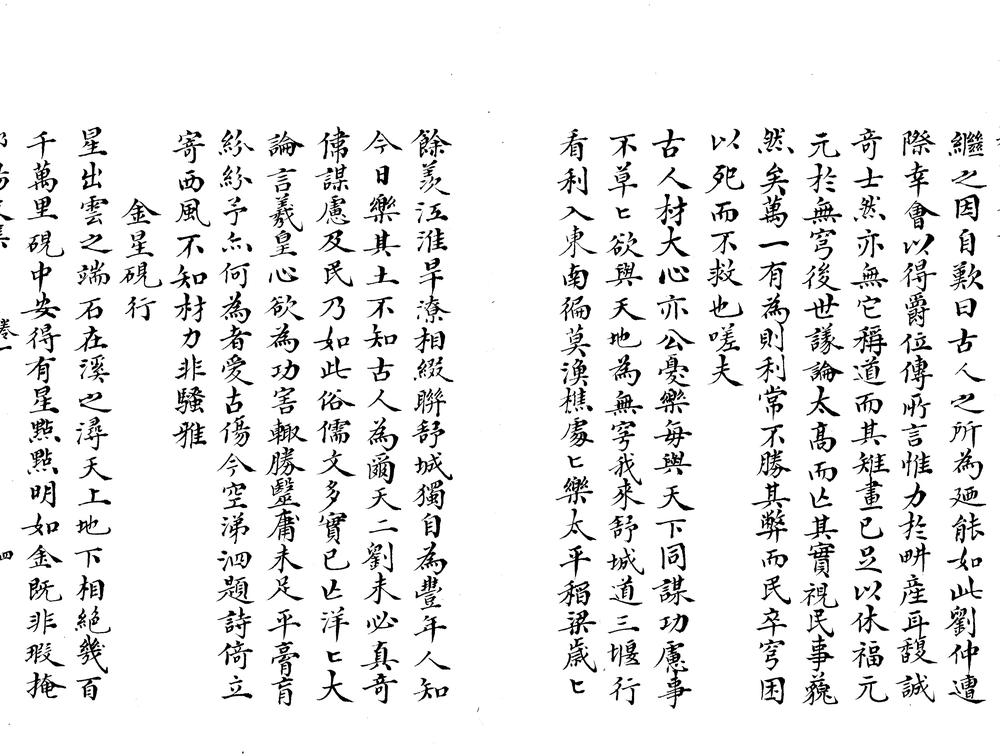 繼之因自歎曰古人之所為廼能如此劉仲遭
際幸會以得爵位傳所言惟力於畊産耳馥誠
奇士然亦無它稱道而其雉畫已足以休福元
元於無穹後世議論太高而亡其實視民事藐
然矣萬一有為則利常不勝其弊而民卒穹困
以死而不救也嗟夫
古人材大心亦公憂樂每與天下同謀功慮事
不草匕欲與天地為無穹我來舒城道三堰行
看利入東南徧莫漁樵處匕樂太平稻梁歲匕
餘羨江淮旱潦相綴聯舒城獨自為豐年人知
今日樂其土不知古人為爾天二劉未必真奇
謀慮及民乃如此俗儒文多實已亡洋匕大
論言羲皇心欲為功害輙勝毉庸未足平膏肓
紛紛予亦何為者愛古傷今空涕泗題詩倚立
寄西風不知材力非騷雅
金星硯行
星出雲之端石在溪之潯天上地下相絶幾百
千萬里硯中安得有星點點明如金既非瑕掩
卷一 四